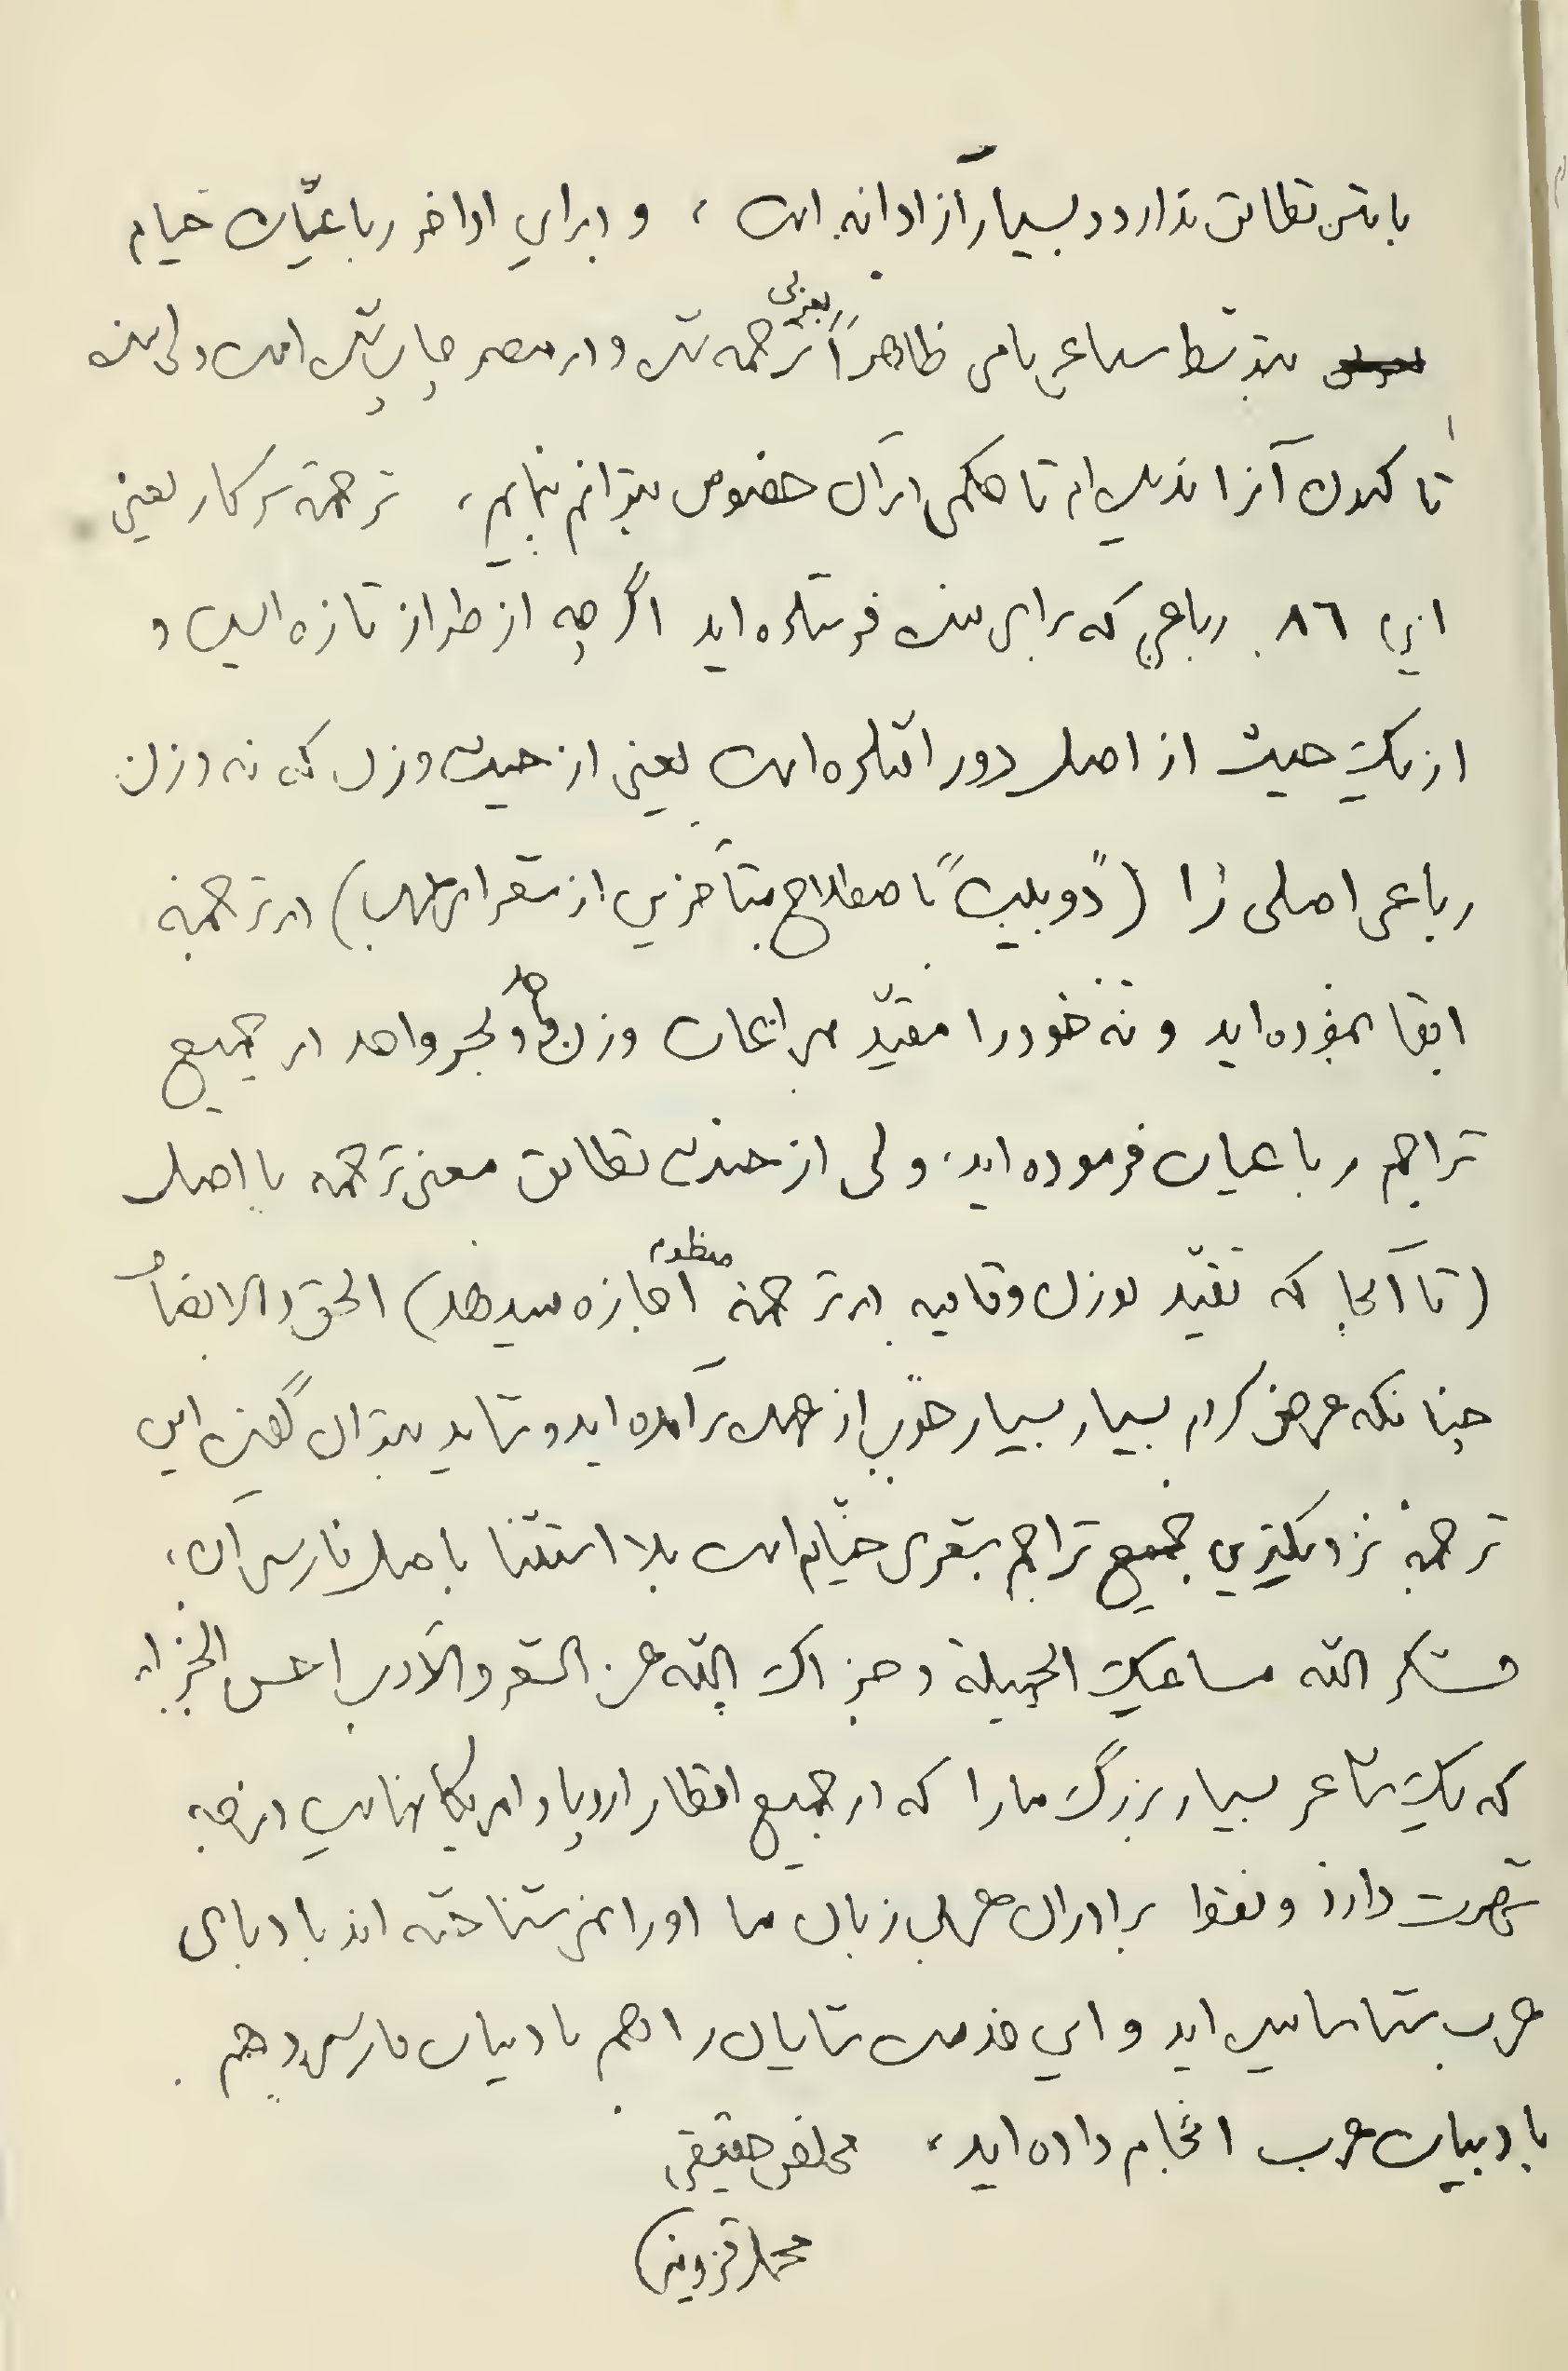 با متن تطابق ندارد و بسیار آزادانه است ، و در این اواخر رباعیّات خیام
بتوسّط سباعی نامی ظاهراً بعربی ترجمه شده و در مصر چاپ شده است ولی بنده
تا کنون آنرا ندیده‌ام تا حکمی در آن خصوص بتوانم بنمایم، ترجمهٔ سرکار یعنی
این ٨٦ رباعی که برای بنده فرستاده اید اگر چه از طراز تازه ایست و
از یک حیث از اصل دور افتاده است یعنی از حیث وزن که نه وزن
رباعی اصلی را («دوبیت» باصطلاح متأخرین از شعرای عرب) در ترجمه
ابقا نموده اید و نه خود را مقیّد بمراعات وزن واحد و بحر واحد در جمیع
تراجم رباعیات فرموده اید، ولی از حیث تطابق معنی ترجمه با اصل
(تا آنجا که تقیّد بوزن و قافیه در ترجمهٔ منظوم اجازه میدهد) الحق والانصاف
چنانکه عرض کردم بسیار بسیار خوب از عهده برآمده اید و شاید بتوان گفت این
ترجمه نزدیکترین جمیع تراجم شعری خیّام است بلا استثنا باصل فارسی آن،
فشکر الله مساعیک الجمیلة و جزاک الله عن الشعر والأدب احسن الجزاء
که یک شاعر بسیار بزرگ ما را که در جمیع اقطار اروپا و امریکا نهایت درجه
شهرت دارد و فقط برادران عرب زبان ما او را نمی شناخته اند بادبای
عرب شناسانیده اید و این خدمت شایان را هم بادبیات فارسی و هم
بادبیات عرب انجام داده اید، مخلص حقیقی
محمد قزوینی